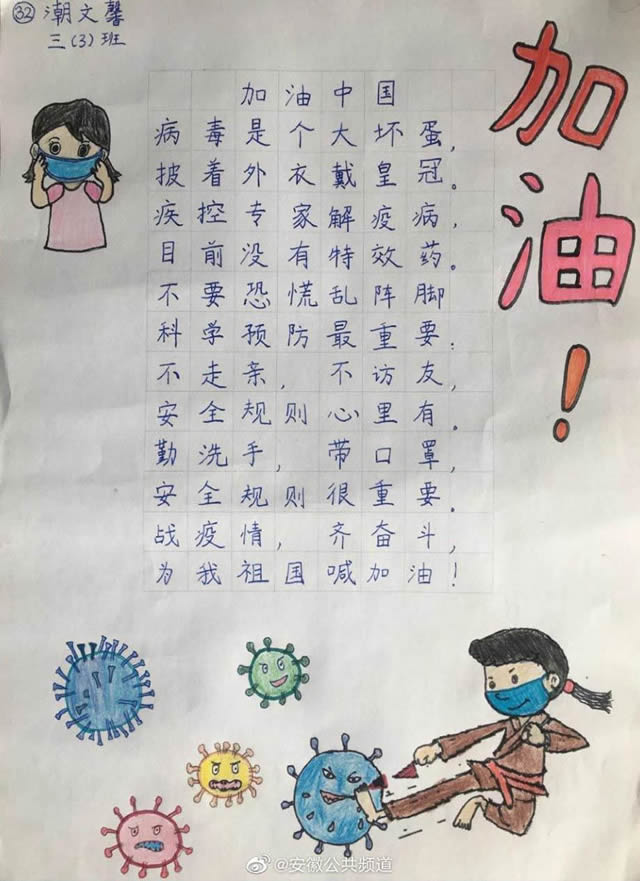 ㉜ 潮文馨
三(3)班
加油中国
病毒是个大坏蛋,
披着外衣戴皇冠。
疾控专家解疫病,
目前没有特效药。
不要恐慌乱阵脚
科学预防最重要:
不走亲,不访友,
安全规则心里有。
勤洗手,带口罩,
安全规则很重要。
战疫情,齐奋斗,
为我祖国喊加油!
加油!
@安徽公共频道